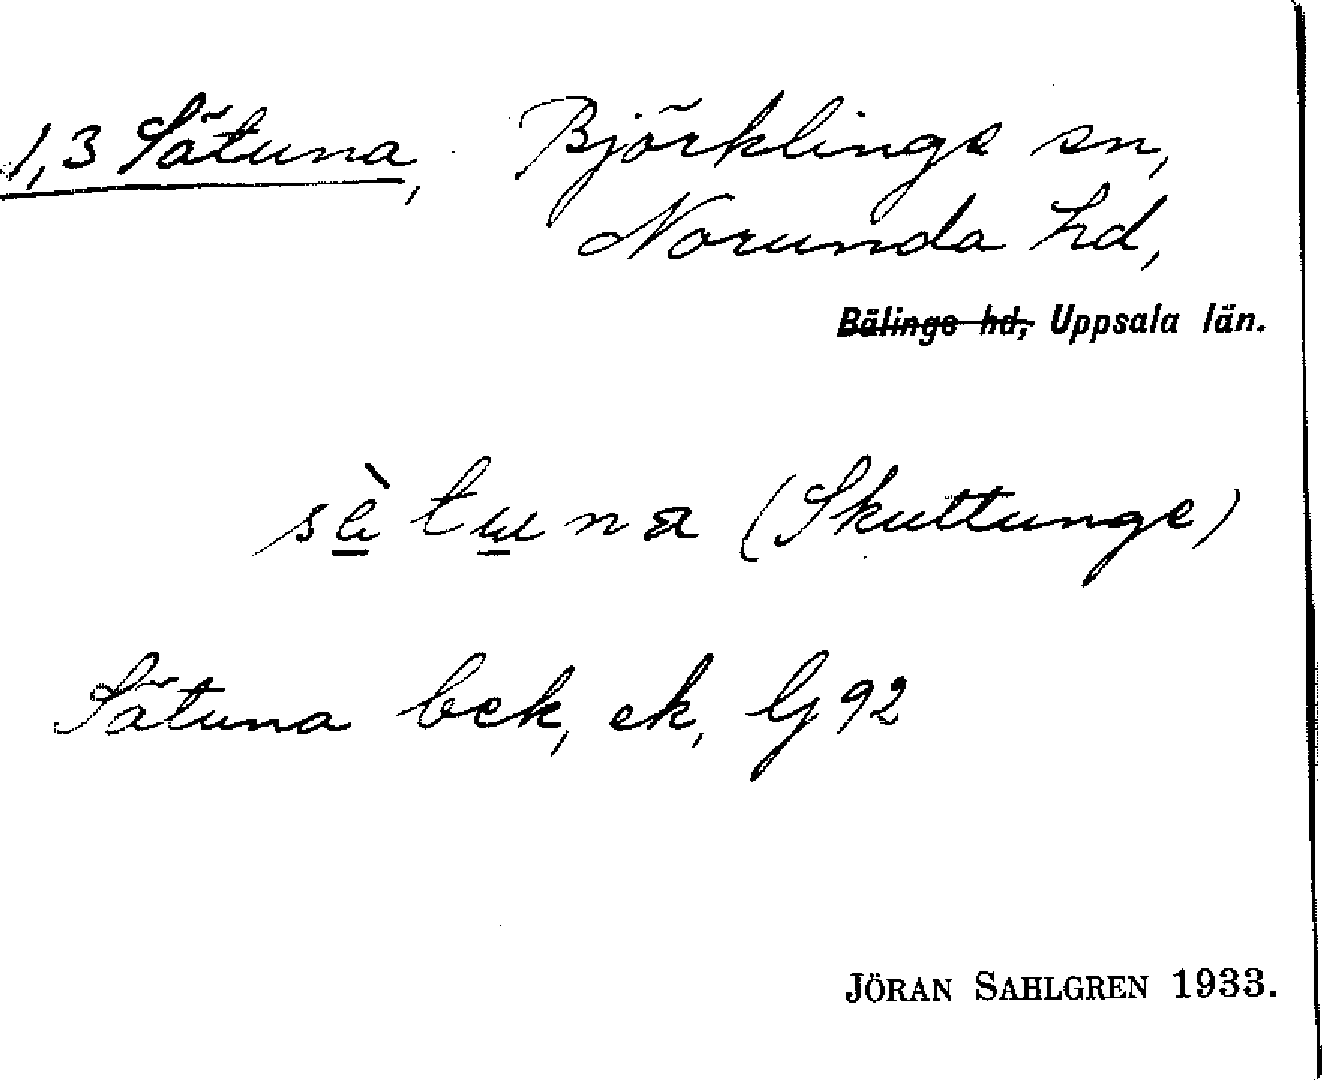 1,3 Sätuna, Björklinge sn,
Norunda hd,
Bälinge hd, Uppsala län.
sè̱tu̱na (Skuttunge)
Sätuna bek, ek, G 92
JÖRAN SAHLGREN 1933.